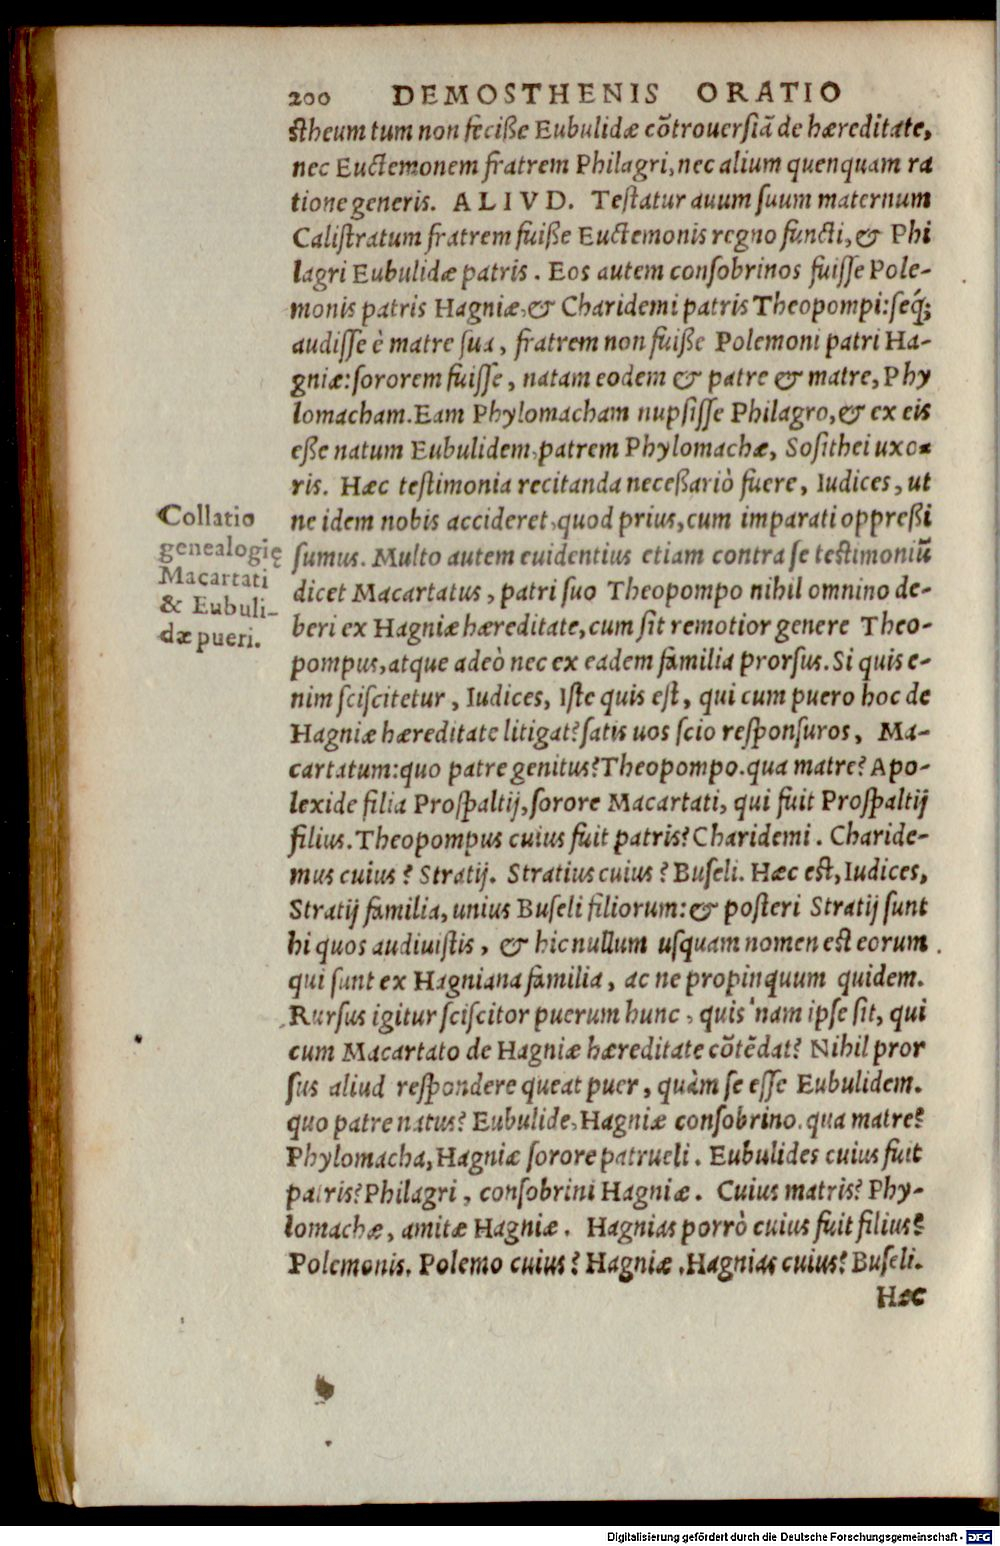 200 DEMOSTHENIS ORATIO
stheum tum non feciße Eubulidæ cõtrouersiã de hæreditate,
nec Euctemonem fratrem Philagri, nec alium quenquam ra
tione generis. ALIVD. Testatur auum suum maternum
Calistratum fratrem fuiße Euctemonis regno functi, & Phi
lagri Eubulidæ patris. Eos autem consobrinos fuisse Pole-
monis patris Hagniæ, & Charidemi patris Theopompi: seq́;
audisse è matre sua, fratrem non fuiße Polemoni patri Ha-
gniæ: sororem fuisse, natam eodem & patre & matre, Phy
lomacham. Eam Phylomacham nupsisse Philagro, & ex eis
eße natum Eubulidem, patrem Phylomachæ, Sosithei uxo-
ris. Hæc testimonia recitanda neceßariò fuere, Iudices, ut
ne idem nobis accideret, quod prius, cum imparati oppreßi
sumus. Multo autem euidentius etiam contra se testimoniũ
dicet Macartatus, patri suo Theopompo nihil omnino de-
beri ex Hagniæ hæreditate, cum sit remotior genere Theo-
pompus, atque adeò nec ex eadem familia prorsus. Si quis e-
nim sciscitetur, Iudices, Iste quis est, qui cum puero hoc de
Hagniæ hæreditate litigat? satis uos scio responsuros, Ma-
cartatum: quo patre genitus? Theopompo. qua matre? Apo-
lexide filia Prospaltij, sorore Macartati, qui fuit Prospaltij
filius. Theopompus cuius fuit patris? Charidemi. Charide-
mus cuius? Stratij. Stratius cuius? Buseli. Hæc est, Iudices,
Stratij familia, unius Buseli filiorum: & posteri Stratij sunt
hi quos audiuistis, & hic nullum usquam nomen est eorum
qui sunt ex Hagniana familia, ac ne propinquum quidem.
Rursus igitur sciscitor puerum hunc, quis'nam ipse sit, qui
cum Macartato de Hagniæ hæreditate cõtẽdat? Nihil pror
sus aliud respondere queat puer, quàm se esse Eubulidem.
quo patre natus? Eubulide, Hagniæ consobrino. qua matre?
Phylomacha, Hagniæ sorore patrueli. Eubulides cuius fuit
patris? Philagri, consobrini Hagniæ. Cuius matris? Phy-
lomachæ, amitæ Hagniæ. Hagnias porrò cuius fuit filius?
Polemonis. Polemo cuius? Hagniæ. Hagnias cuius? Buseli.
Hæc
Collatio
genealogię
Macartati
& Eubuli-
dæ pueri.
Digitalisierung gefördert durch die Deutsche Forschungsgemeinschaft - DFG